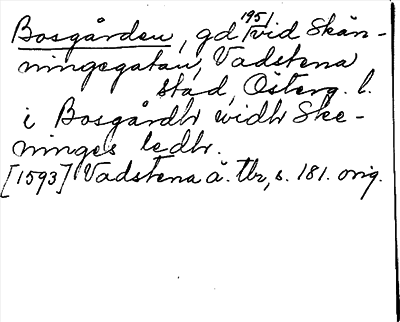 Bosgården, gd 1951 vid Skän-
ningegatan, Vadstena
stad, Österg. l.
i Bosgårdh widh Ske-
ninges ledh.
[1593] Vadstena ä. tbr, s. 181. orig.